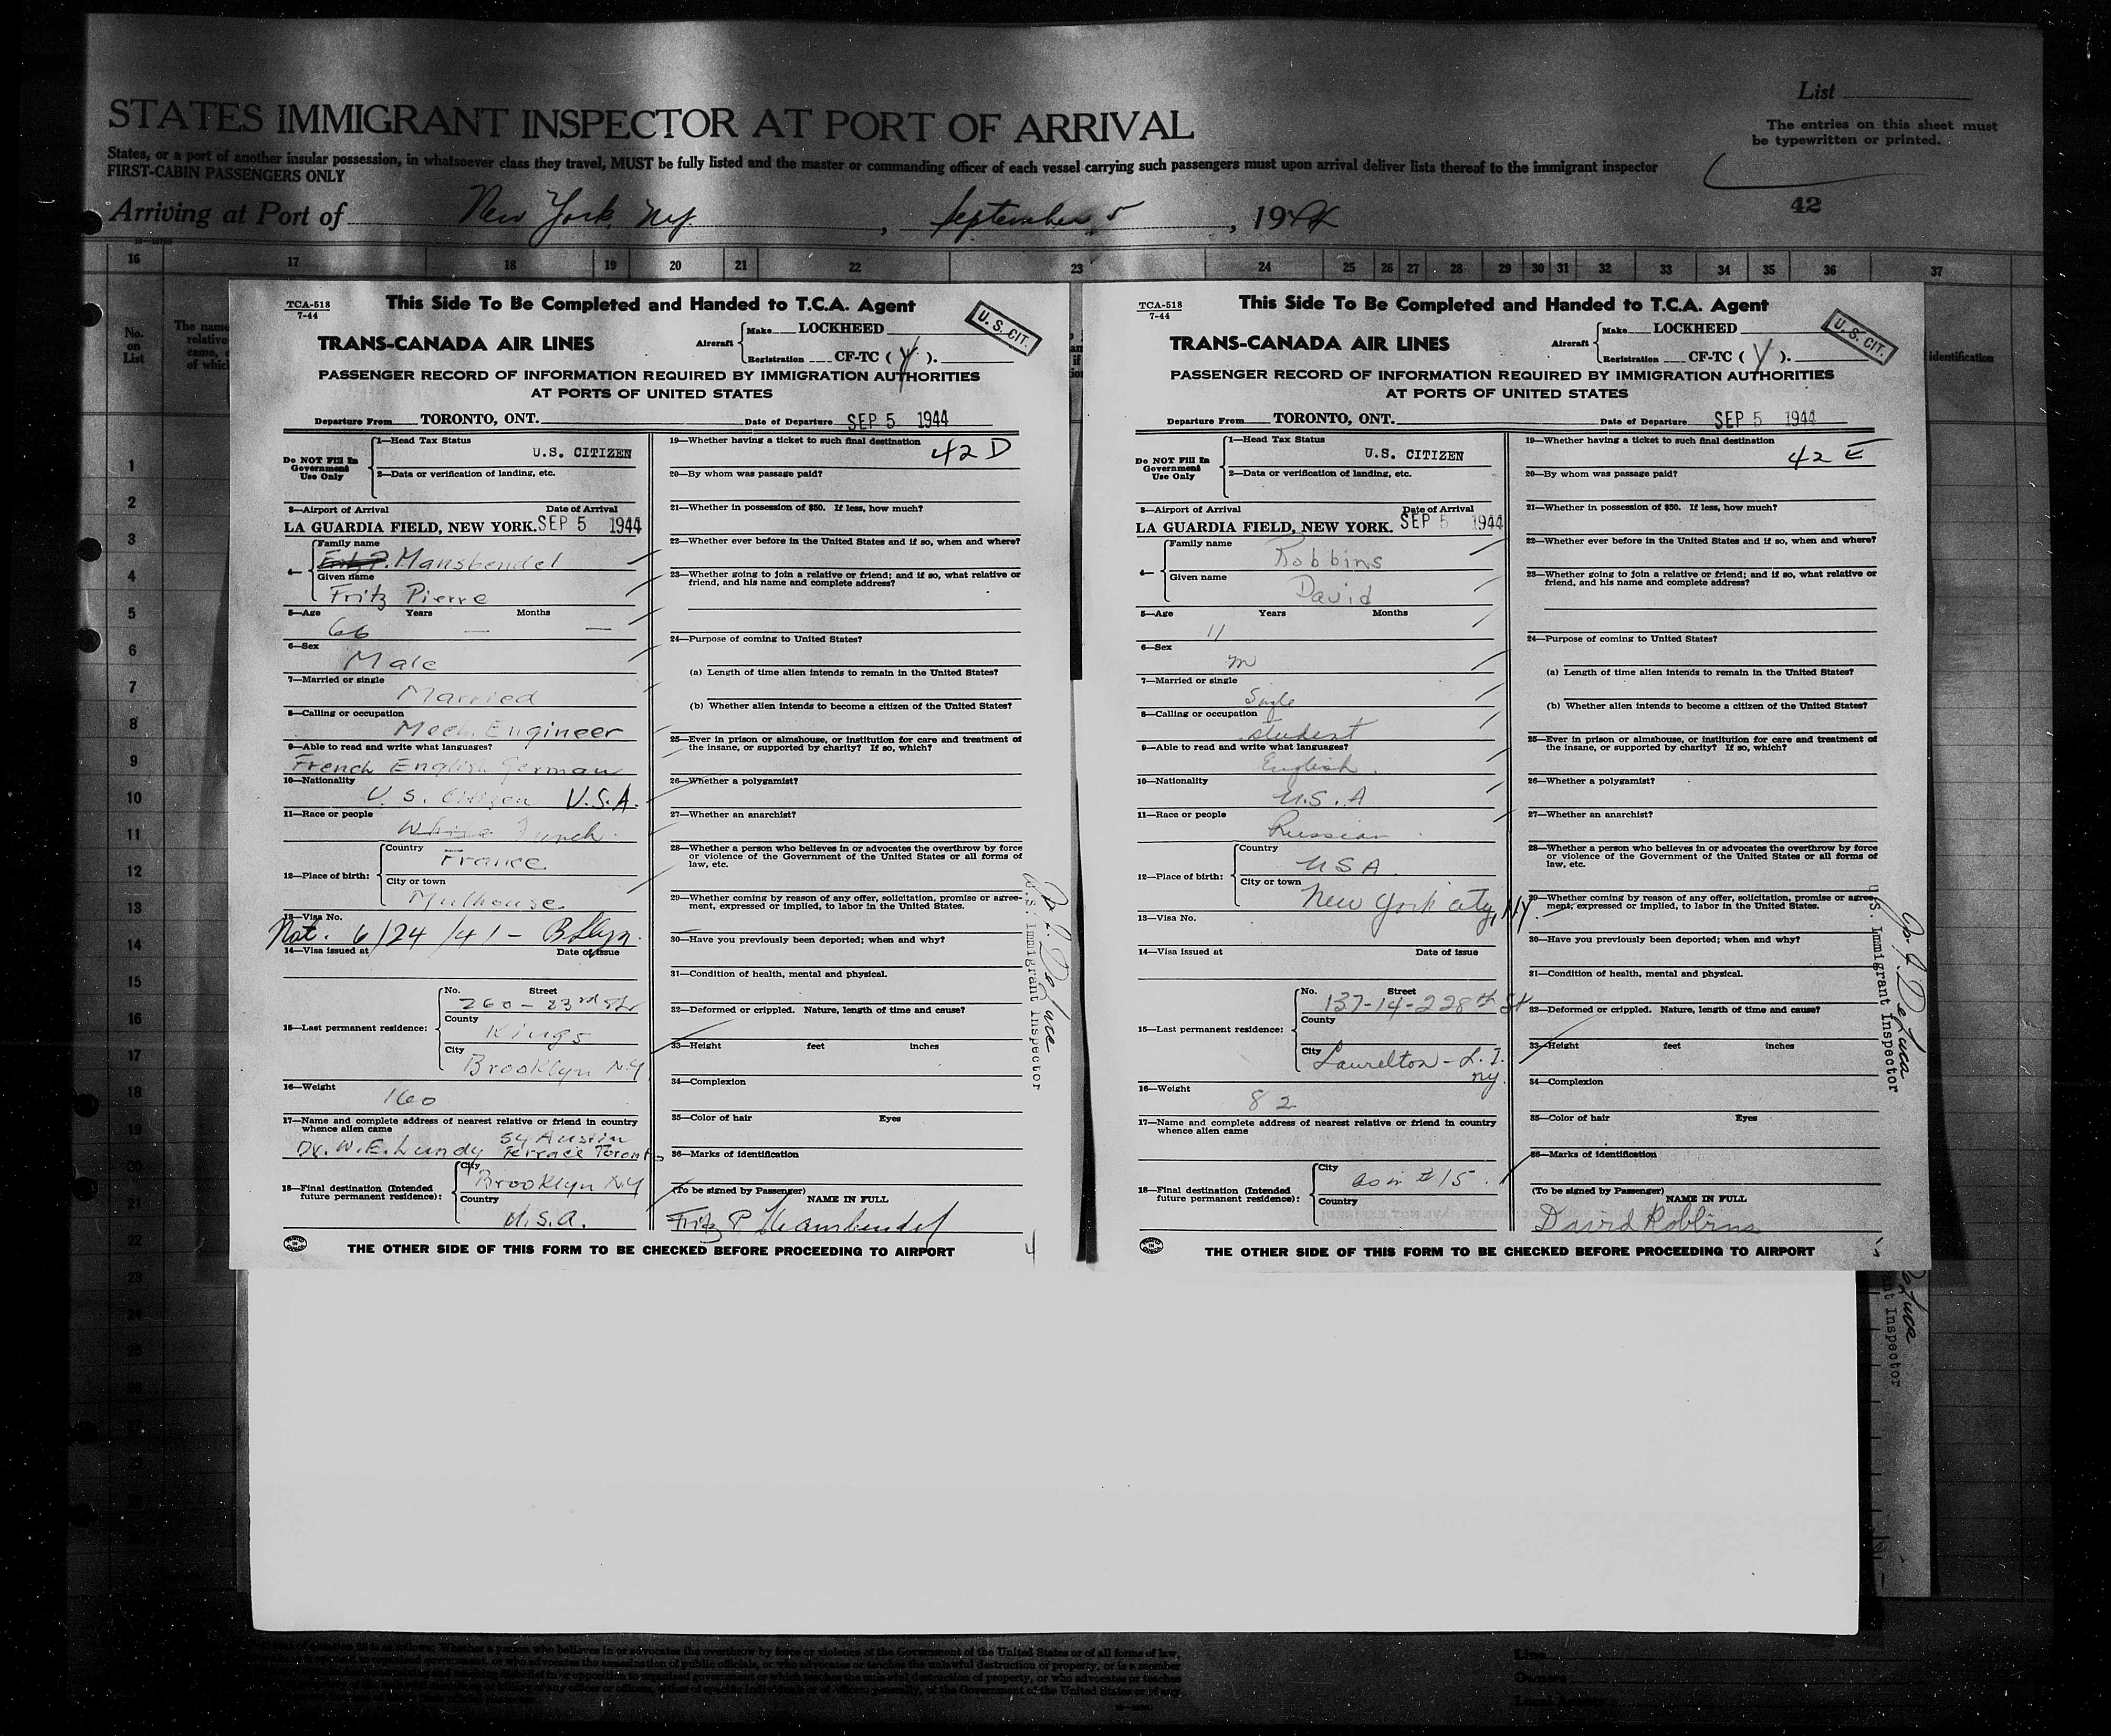 STATES IMMIGRANT INSPECTOR AT PORT OF ARRIVAL
List
The entries on this sheet must
be typewritten or printed.
States, or a port of another insular possession, in whatsoever class they travel, MUST be fully listed and the master or commanding officer of each vessel carrying such passengers must upon arrival deliver lists thereof to the immigrant inspector
FIRST-CABIN PASSENGERS ONLY
Arriving at Port of New York, NY. , September 5 , 1944
42
16 17 18 19 20 21 22 23 24 25 26 27 28 29 30 31 32 33 34 35 36 37
No.
on
List
The name
relative
came,
of whic
identification
1
2
3
4
5
6
7
8
9
10
11
12
13
14
15
16
17
18
19
20
21
22
23
24
25
TCA-518
7-44
This Side To Be Completed and Handed to T.C.A. Agent
U. S. CIT.
TRANS-CANADA AIR LINES
Aircraft
Make LOCKHEED
Registration CF-TC ( Y ).
PASSENGER RECORD OF INFORMATION REQUIRED BY IMMIGRATION AUTHORITIES
AT PORTS OF UNITED STATES
Departure From TORONTO, ONT. Date of Departure SEP 5 1944
Do NOT Fill In
Government
Use Only
1—Head Tax Status
U.S. CITIZEN
2—Data or verification of landing, etc.
3—Airport of Arrival Date of Arrival
LA GUARDIA FIELD, NEW YORK. SEP 5 1944
4—
Family name
Fritz P. Mansbendel
Given name
Fritz Pierre
5—Age Years Months
66 — —
6—Sex
Male
7—Married or single
Married
8—Calling or occupation
Mech. Engineer
9—Able to read and write what languages?
French English German
10—Nationality
U.S. Citizen U.S.A.
11—Race or people
White French
12—Place of birth:
Country
France
City or town
Mulhouse
13—Visa No.
Nat. 6/24/41 - Bklyn.
14—Visa issued at Date of issue
15—Last permanent residence:
No. Street
260 - 83rd St.
County
Kings
City
Brooklyn N.Y
16—Weight
160
17—Name and complete address of nearest relative or friend in country
whence alien came
Dr. W.E. Lundy 54 Austin
Terrace Toronto
18—Final destination (Intended
future permanent residence):
City
Brooklyn N.Y
Country
U.S.A.
19—Whether having a ticket to such final destination
42 D
20—By whom was passage paid?
21—Whether in possession of $50. If less, how much?
22—Whether ever before in the United States and if so, when and where?
23—Whether going to join a relative or friend; and if so, what relative or
friend, and his name and complete address?
24—Purpose of coming to United States?
(a) Length of time alien intends to remain in the United States?
(b) Whether alien intends to become a citizen of the United States?
25—Ever in prison or almshouse, or institution for care and treatment of
the insane, or supported by charity? If so, which?
26—Whether a polygamist?
27—Whether an anarchist?
28—Whether a person who believes in or advocates the overthrow by force
or violence of the Government of the United States or all forms of
law, etc.
29—Whether coming by reason of any offer, solicitation, promise or agree-
ment, expressed or implied, to labor in the United States.
30—Have you previously been deported; when and why?
31—Condition of health, mental and physical.
32—Deformed or crippled. Nature, length of time and cause?
33—Height feet inches
34—Complexion
35—Color of hair Eyes
36—Marks of identification
(To be signed by Passenger)
NAME IN FULL
Fritz P Mansbendel
THE OTHER SIDE OF THIS FORM TO BE CHECKED BEFORE PROCEEDING TO AIRPORT
4
U.S. Immigrant Inspector
TCA-518
7-44
This Side To Be Completed and Handed to T.C.A. Agent
U. S. CIT.
TRANS-CANADA AIR LINES
Aircraft
Make LOCKHEED
Registration CF-TC ( Y ).
PASSENGER RECORD OF INFORMATION REQUIRED BY IMMIGRATION AUTHORITIES
AT PORTS OF UNITED STATES
Departure From TORONTO, ONT. Date of Departure SEP 5 1944
Do NOT Fill In
Government
Use Only
1—Head Tax Status
U.S. CITIZEN
2—Data or verification of landing, etc.
3—Airport of Arrival Date of Arrival
LA GUARDIA FIELD, NEW YORK. SEP 5 1944
4—
Family name
Robbins
Given name
David
5—Age Years Months
11
6—Sex
m
7—Married or single
Single
8—Calling or occupation
student
9—Able to read and write what languages?
English
10—Nationality
U.S.A
11—Race or people
Russian
12—Place of birth:
Country
USA
City or town
New York City, NY.
13—Visa No.
14—Visa issued at Date of issue
15—Last permanent residence:
No. Street
137-14-228th St
County
City
Laurelton - L.I.
ny.
16—Weight
82
17—Name and complete address of nearest relative or friend in country
whence alien came
18—Final destination (Intended
future permanent residence):
City
as in #15.
Country
19—Whether having a ticket to such final destination
42 E
20—By whom was passage paid?
21—Whether in possession of $50. If less, how much?
22—Whether ever before in the United States and if so, when and where?
23—Whether going to join a relative or friend; and if so, what relative or
friend, and his name and complete address?
24—Purpose of coming to United States?
(a) Length of time alien intends to remain in the United States?
(b) Whether alien intends to become a citizen of the United States?
25—Ever in prison or almshouse, or institution for care and treatment of
the insane, or supported by charity? If so, which?
26—Whether a polygamist?
27—Whether an anarchist?
28—Whether a person who believes in or advocates the overthrow by force
or violence of the Government of the United States or all forms of
law, etc.
29—Whether coming by reason of any offer, solicitation, promise or agree-
ment, expressed or implied, to labor in the United States.
30—Have you previously been deported; when and why?
31—Condition of health, mental and physical.
32—Deformed or crippled. Nature, length of time and cause?
33—Height feet inches
34—Complexion
35—Color of hair Eyes
36—Marks of identification
(To be signed by Passenger)
NAME IN FULL
David Robbins
THE OTHER SIDE OF THIS FORM TO BE CHECKED BEFORE PROCEEDING TO AIRPORT
U.S. Immigrant Inspector
ant Inspector
Line
Owners